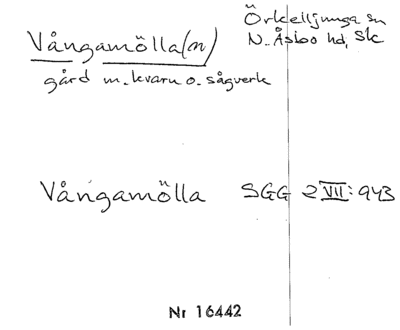 Vångamölla(n)
Örkelljunga sn
N. Åsbo hd, Sk
gård m. kvarn o. sågverk
Vångamölla SGG 2 VII: 943
Nr 16442